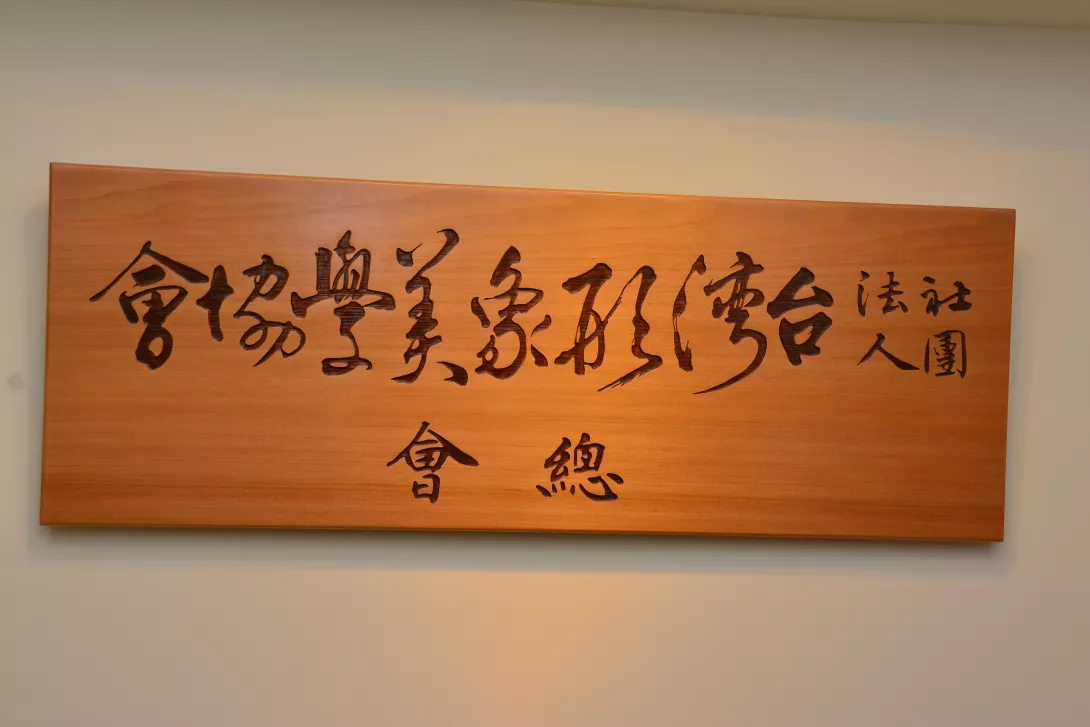 社團法人
台灣形象美學協會
總會